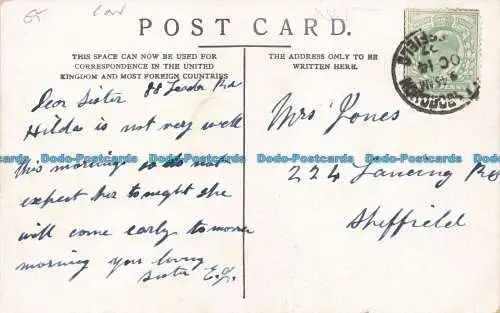 POST CARD.
THIS SPACE CAN NOW BE USED FOR
CORRESPONDENCE IN THE UNITED
KINGDOM AND MOST FOREIGN COUNTRIES
THE ADDRESS ONLY TO BE
WRITTEN HERE.
88 Leader Rd
Dear Sister
Hilda is not very well
this morning so do not
expect her to night she
will come early to morrow
morning your loving
sister E.J.
Mrs Jones
224 Lancing Rd
Sheffield
OC 14
07
Dodo-Postcards Dodo-Postcards Dodo-Postcards Dodo-Postcards